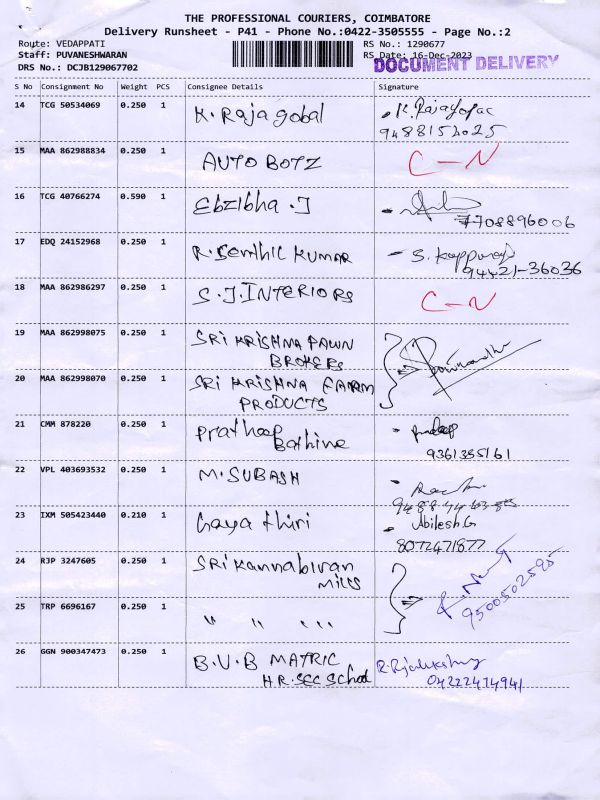 THE PROFESSIONAL COURIERS, COIMBATORE
Delivery Runsheet - P41 - Phone No.:0422-3505555 - Page No.:2
Route: VEDAPPATI RS No.: 1290677
Staff: PUVANESHWARAN RS Date: 16-Dec-2023
DRS No.: DCJB129067702 DOCUMENT DELIVERY
S No Consignment No Weight PCS Consignee Details Signature
14 TCG 50534069 0.250 1 K. Rajagobal
9488152025
15 MAA 862988834 0.250 1 AUTO BOTZ C-N
16 TCG 40766274 0.590 1 Ebzibha .J
7708896006
17 EDQ 24152968 0.250 1 R. Senthil KUMAR S.
94421-36036
18 MAA 862986297 0.250 1 S.J.INTERIORS C-N
19 MAA 862998075 0.250 1 SRI KRISHNA PAWN
BROKERS
20 MAA 862998070 0.250 1 SRI KRISHNA FARM
PRODUCTS
21 CMM 878220 0.250 1 Pratheep Pradeep
Bathine 9361355161
22 VPL 403693532 0.250 1 M.SUBASH
23 IXM 505423440 0.210 1 Gayathiri Abilesh G
8072471877
24 RJP 3247605 0.250 1 SRI Kannabiran
MILLS
9500502595
25 TRP 6696167 0.250 1 " " " "
26 GGN 900347473 0.250 1 B.V.B MATRIC
HR.SEC School 04222474941